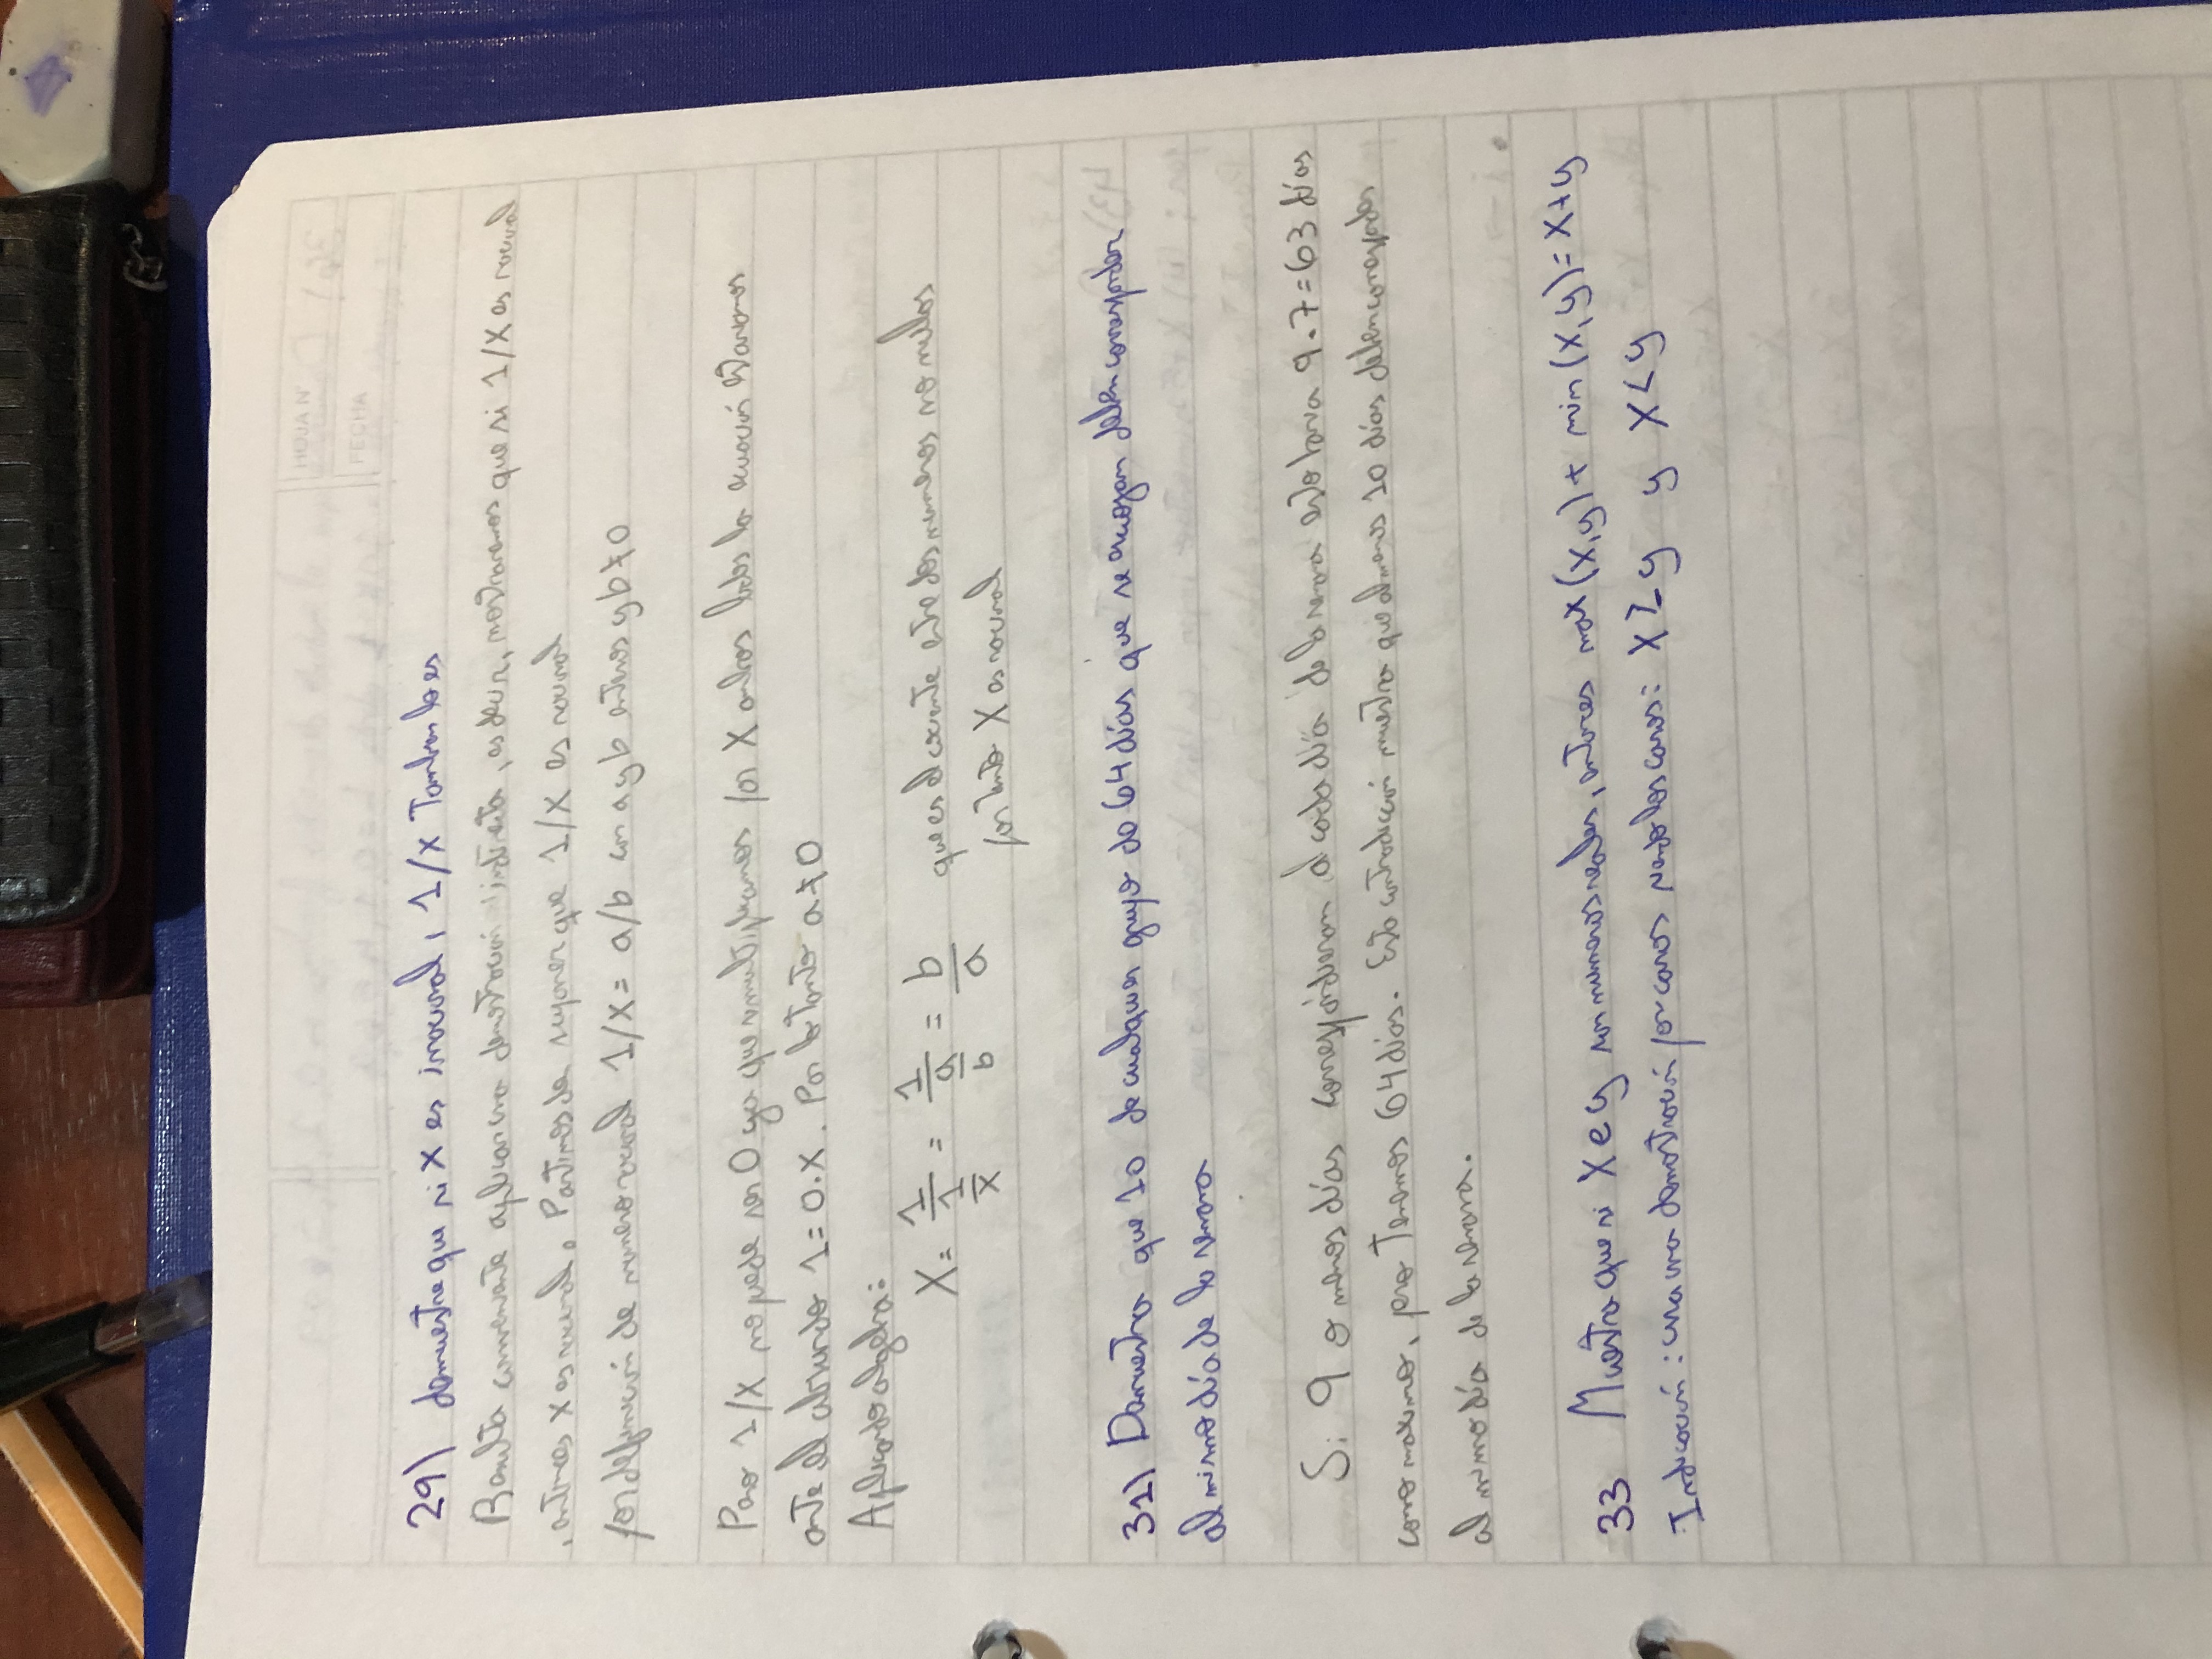 HOJA N°
FECHA
29) demuestre que si x es irracional, 1/x Tambien lo es
Resulta conveniente aplicar una demostración indirecta, es decir, mostraremos que si 1/x es racional
, entonces x es racional. Partimos de suponer que 1/x es racional
por definición de numero racional 1/x = a/b con a y b enteros y b≠0
Pero 1/x no puede ser 0 ya que si multiplicamos por x ambos lados la ecuación estaremos
ante el absurdo 1=0.x. Por lo Tanto a≠0
Aplicando algebra:
x = 1/(1/x) = 1/(a/b) = b/a que es el cociente entre dos numeros no nullos
por tanto x es racional
31) Demuestra que 10 de cualquier grupo de 64 días que se escojan deben corresponder
al mismo día de la semana
Si 9 o menos días correspondieran a cada día de la semana esto daria 9.7=63 días
como maximo, pero Tenemos 64 días. Esta contradicción muestra que al menos 10 días deben corresponder
al mismo día de la semana.
33 Muestra que si x e y son numeros reales, entonces max(x,y) + min(x,y)=x+y
Indicación: usa una demostración por casos siendo los casos: x≥y y x<y